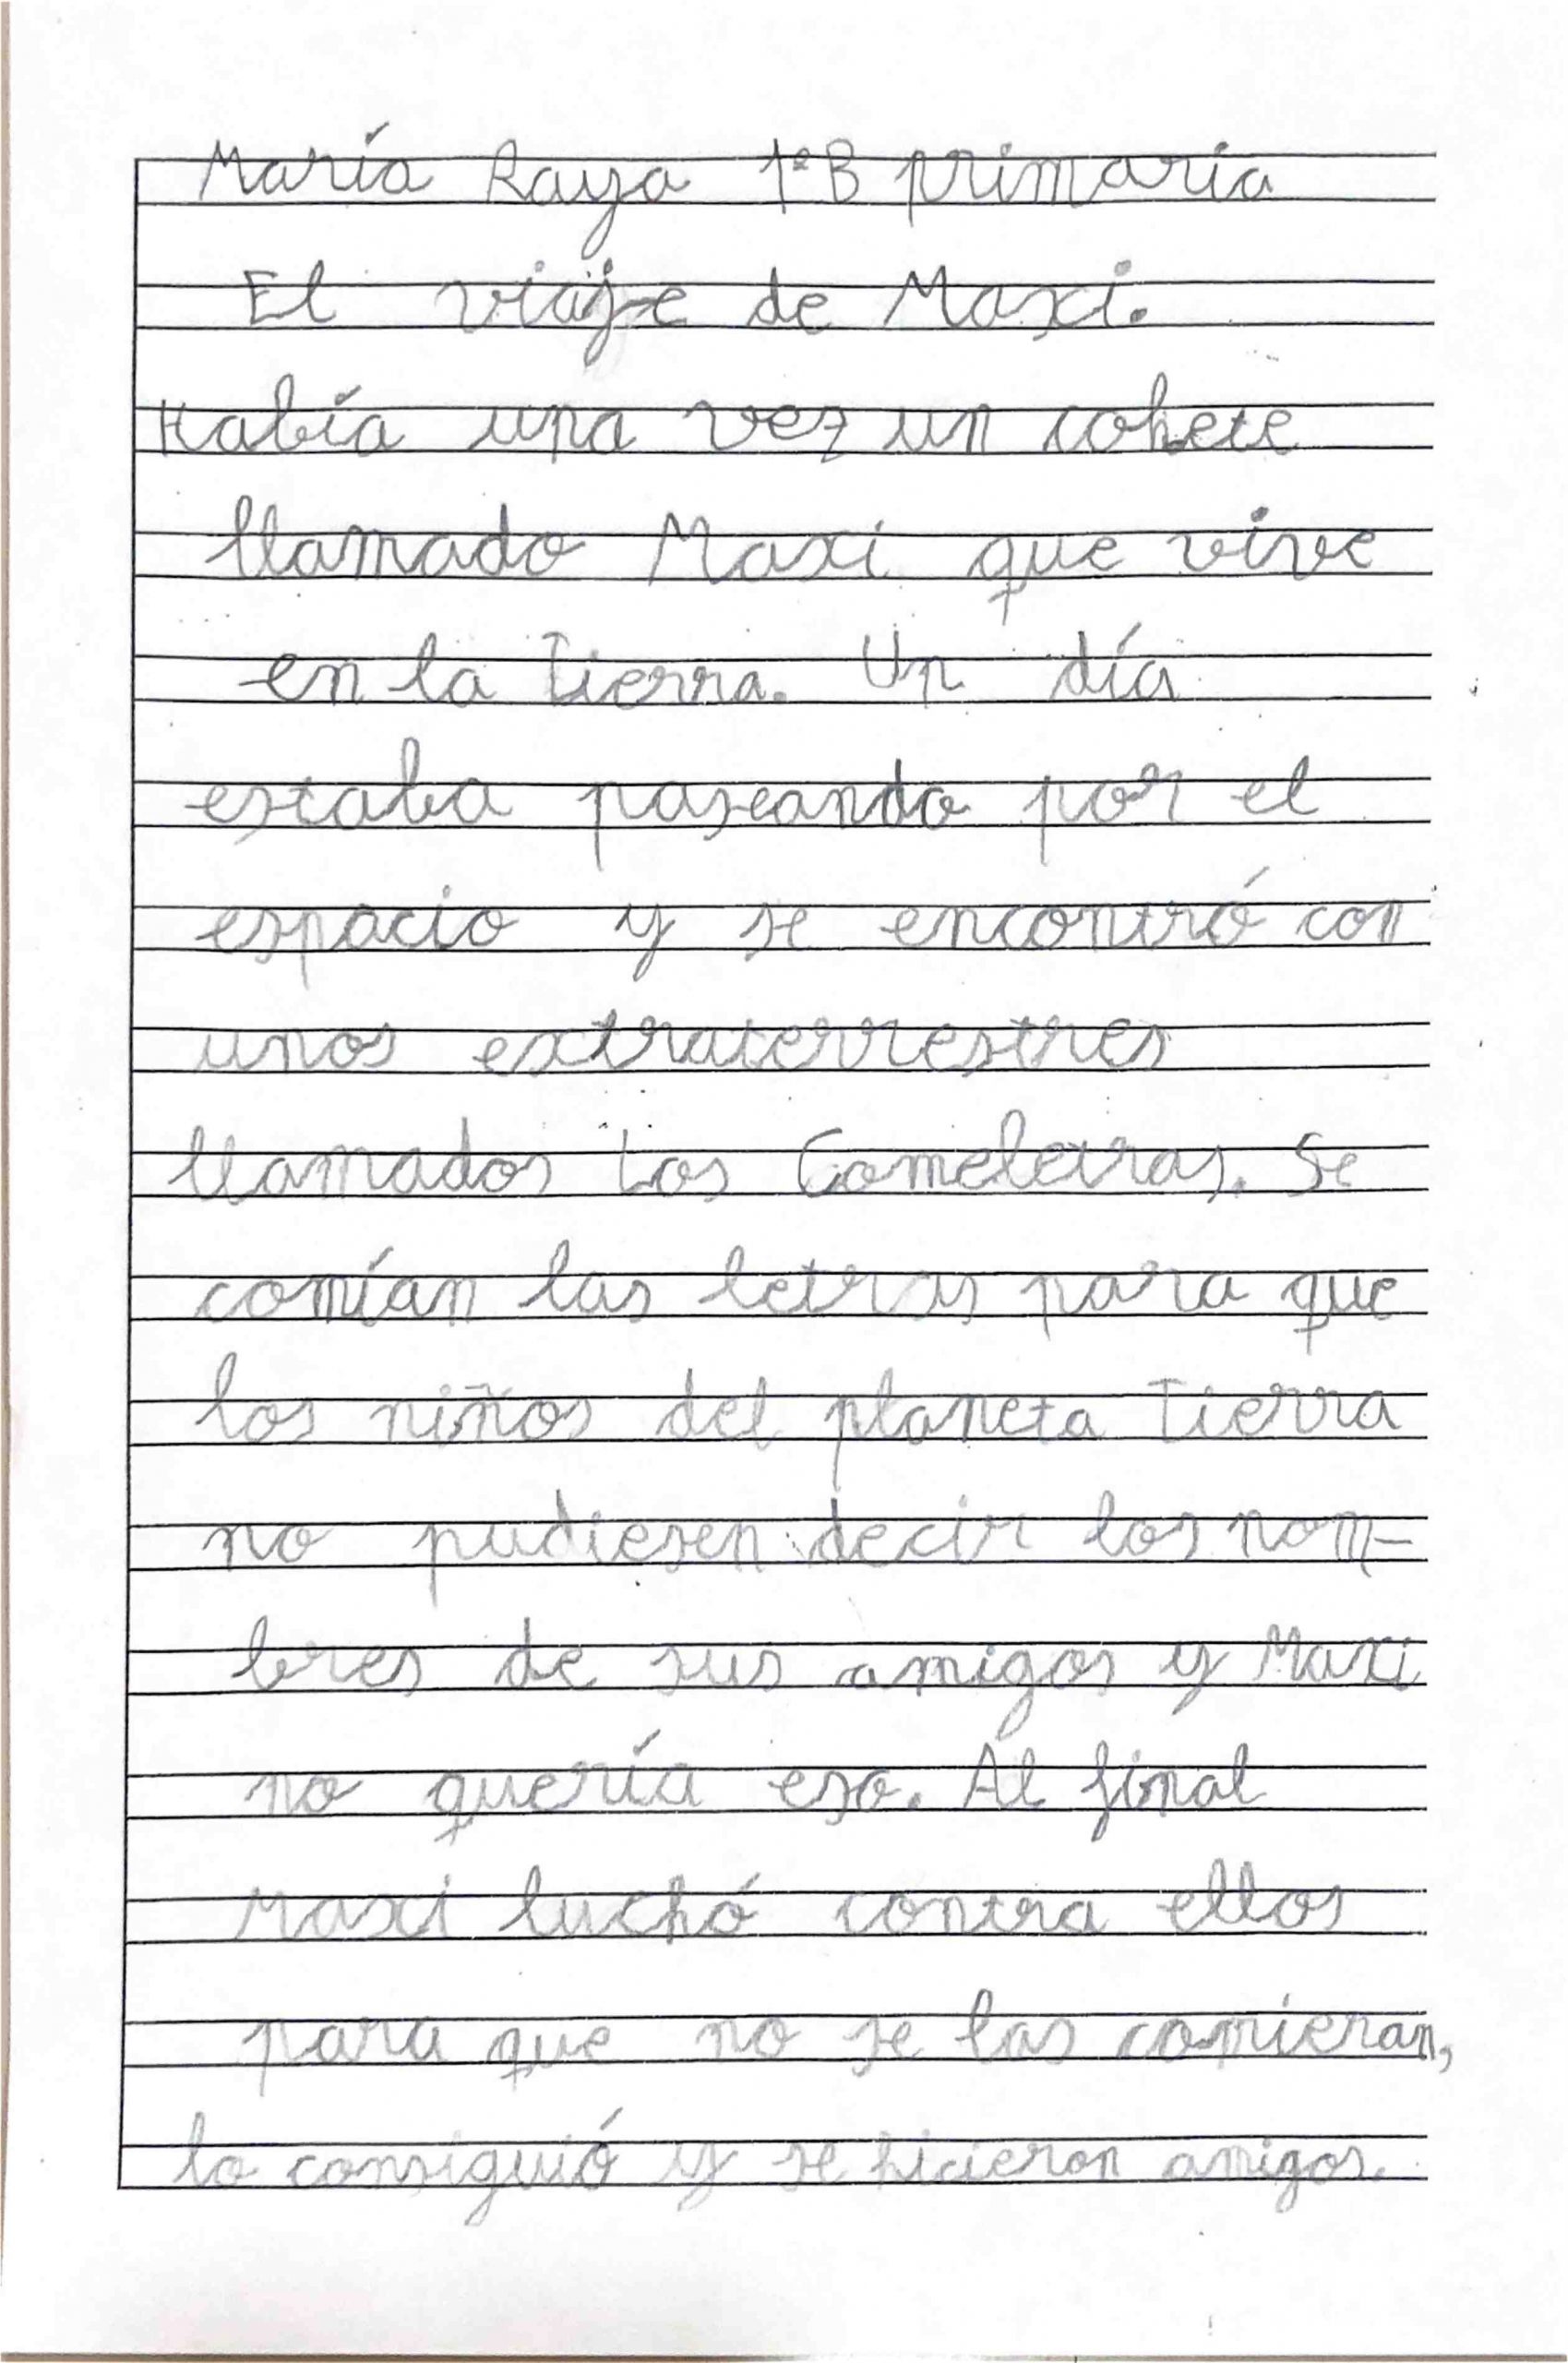 María Raya 1ºB primaria
El viaje de Maxi.
Había una vez un cohete
llamado Maxi que vive
en la Tierra. Un día
estaba paseando por el
espacio y se encontró con
unos extraterrestres
llamados Los Comeletras. Se
comían las letras para que
los niños del planeta Tierra
no pudiesen decir los nom-
bres de sus amigos y Maxi
no quería eso. Al final
Maxi luchó contra ellos
para que no se las comieran,
lo consiguió y se hicieron amigos.